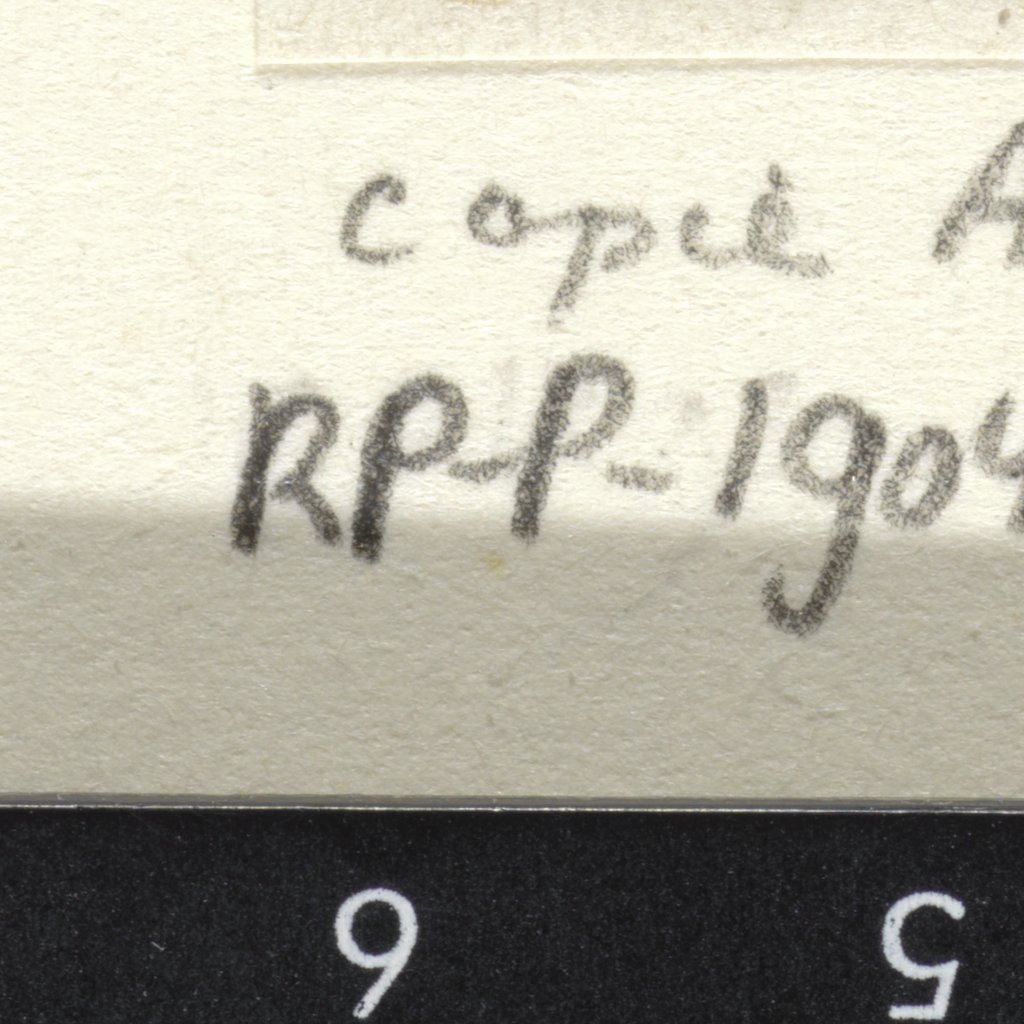 copie A
RPP-P-1904
6 5